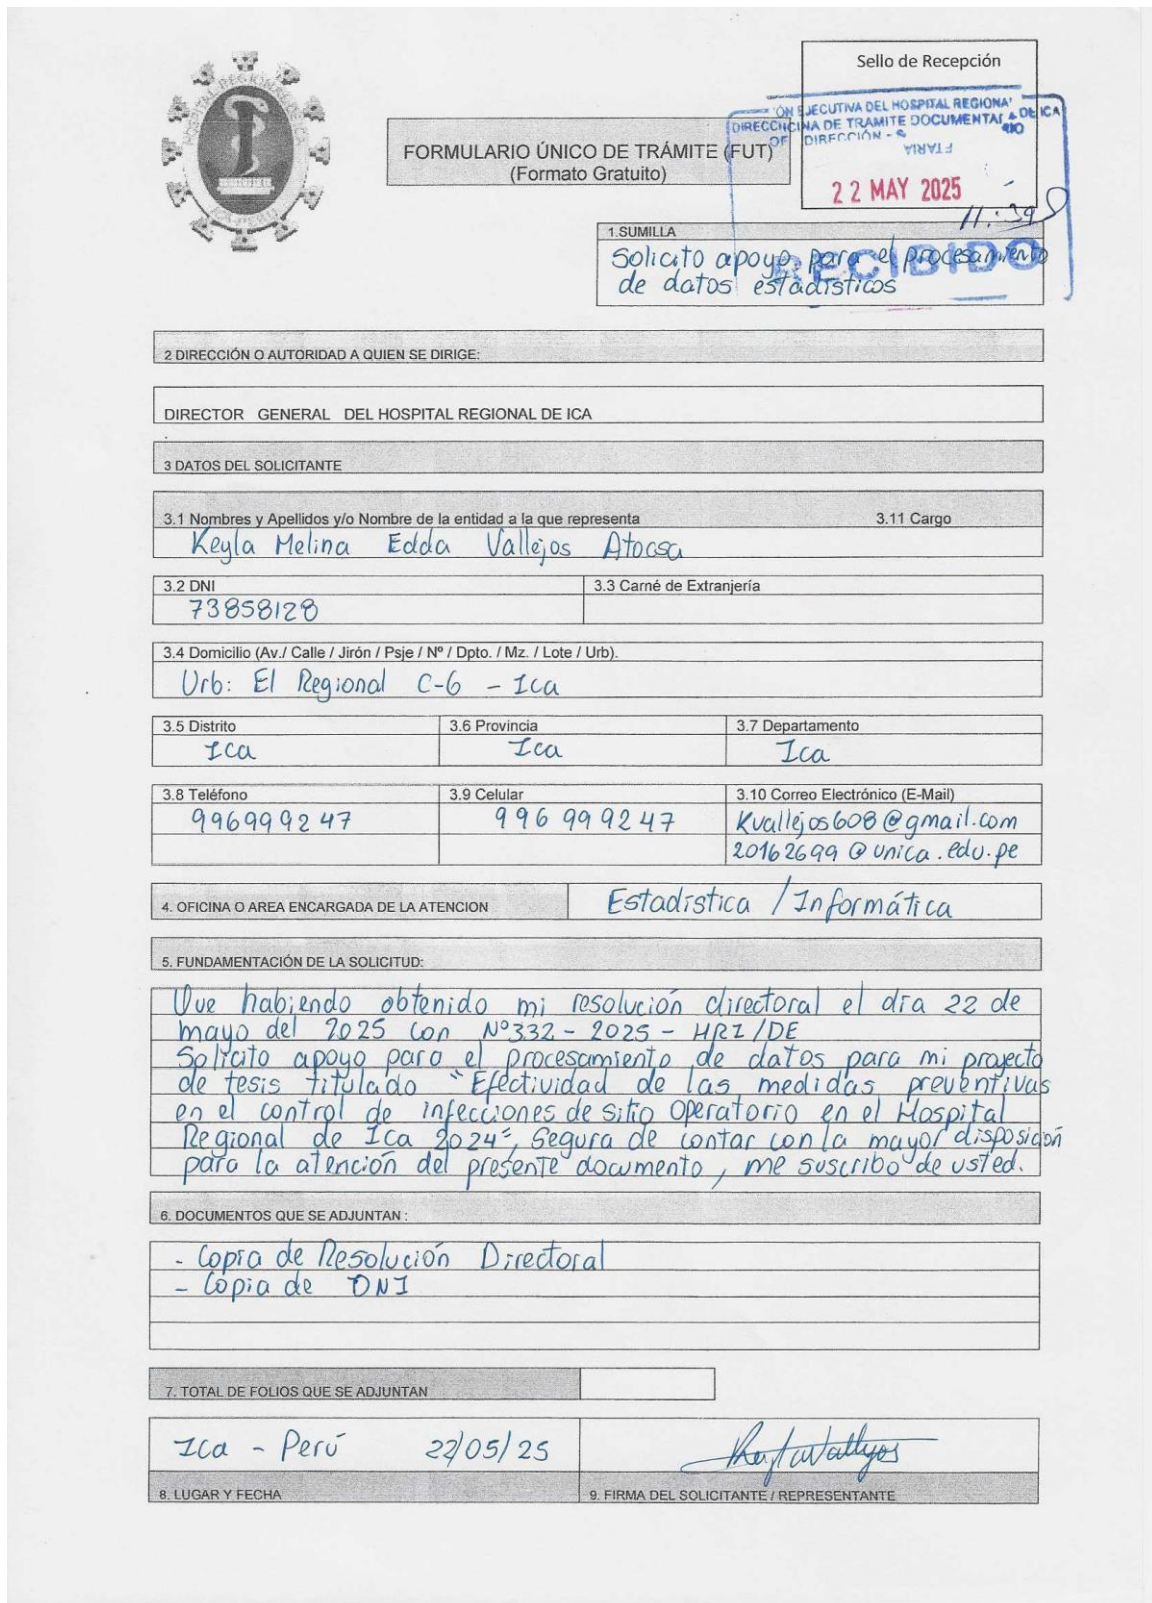 HOSPITAL REGIONAL DE ICA
ICA-PERÚ
Sello de Recepción
EJECUTIVA DEL HOSPITAL REGIONAL
DE TRAMITE DOCUMENTARIO
DE ICA
22 MAY 2025
11:39
RECIBIDO
FORMULARIO ÚNICO DE TRÁMITE (FUT)
(Formato Gratuito)
1.SUMILLA
Solicito apoyo para el procesamiento
de datos estadísticos
2 DIRECCIÓN O AUTORIDAD A QUIEN SE DIRIGE:
DIRECTOR GENERAL DEL HOSPITAL REGIONAL DE ICA
3 DATOS DEL SOLICITANTE
3.1 Nombres y Apellidos y/o Nombre de la entidad a la que representa 3.11 Cargo
Keyla Melina Edda Vallejos Atocsa
3.2 DNI 3.3 Carné de Extranjería
73858128
3.4 Domicilio (Av./ Calle / Jirón / Psje / Nº / Dpto. / Mz. / Lote / Urb).
Urb: El Regional C-6 - Ica
3.5 Distrito 3.6 Provincia 3.7 Departamento
Ica Ica Ica
3.8 Teléfono 3.9 Celular 3.10 Correo Electrónico (E-Mail)
996999247 996 999247 Kvallejos608@gmail.com
20162699@unica.edu.pe
4. OFICINA O AREA ENCARGADA DE LA ATENCION Estadística / Informática
5. FUNDAMENTACIÓN DE LA SOLICITUD:
Que habiendo obtenido mi resolución directoral el día 22 de
mayo del 2025 con Nº332-2025-HRI/DE
Solicito apoyo para el procesamiento de datos para mi proyecto
de tesis titulado "Efectividad de las medidas preventivas
en el control de infecciones de sitio operatorio en el Hospital
Regional de Ica 2024", Segura de contar con la mayor disposición
para la atención del presente documento, me suscribo de usted.
6. DOCUMENTOS QUE SE ADJUNTAN :
- Copia de Resolución Directoral
- Copia de DNI
7. TOTAL DE FOLIOS QUE SE ADJUNTAN
Ica - Perú 22/05/25
8. LUGAR Y FECHA 9. FIRMA DEL SOLICITANTE / REPRESENTANTE